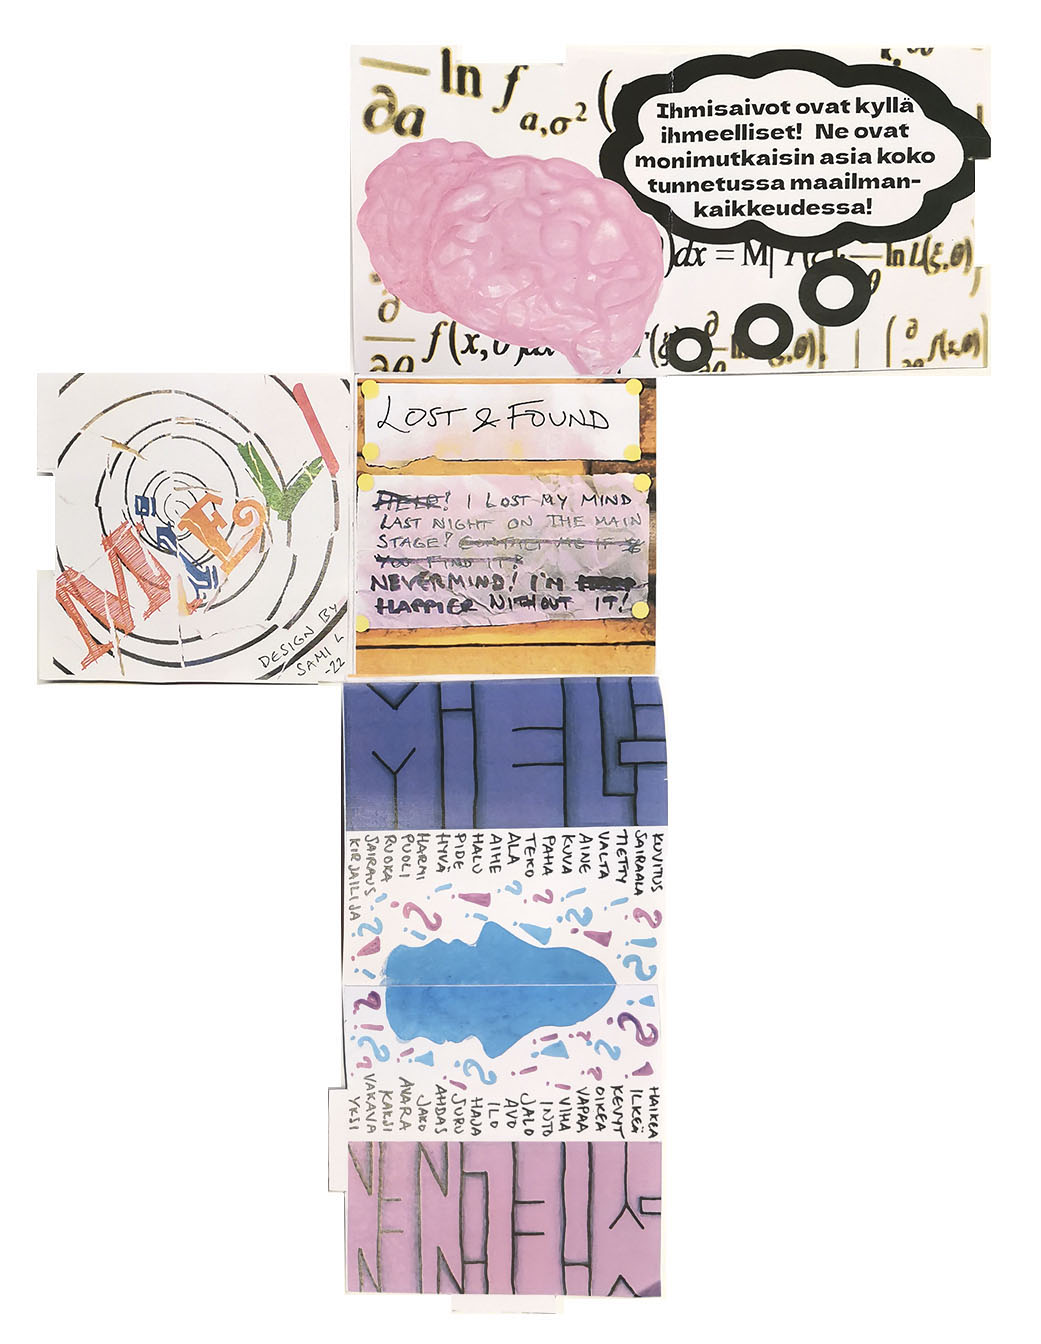 ln f a,σ² (
∂a
Ihmisaivot ovat kyllä
ihmeelliset! Ne ovat
monimutkaisin asia koko
tunnetussa maailman-
kaikkeudessa!
LOST & FOUND
HELP! I LOST MY MIND
LAST NIGHT ON THE MAIN
STAGE! CONTACT ME IF
YOU FIND IT!
NEVERMIND! I'M
HAPPIER WITHOUT IT!
DESIGN BY
SAMI L
-22
KUVITUS
SAIRAALA
TIETTY
VALTA
AINE
KUVA
PAHA
TEKO
ALA
AIHE
HALU
PIDE
HYVÄ
HARMI
PUOLI
RUOKA
SAIRAUS
KIRJAILIJA
HAIKEA
ILKEÄ
KEVYT
OIKEA
VAPAA
VIHA
INTO
JALO
AVO
ILO
HAJA
SURU
AHDAS
JAKO
AVARA
KAKSI
VAKAVA
YKSI